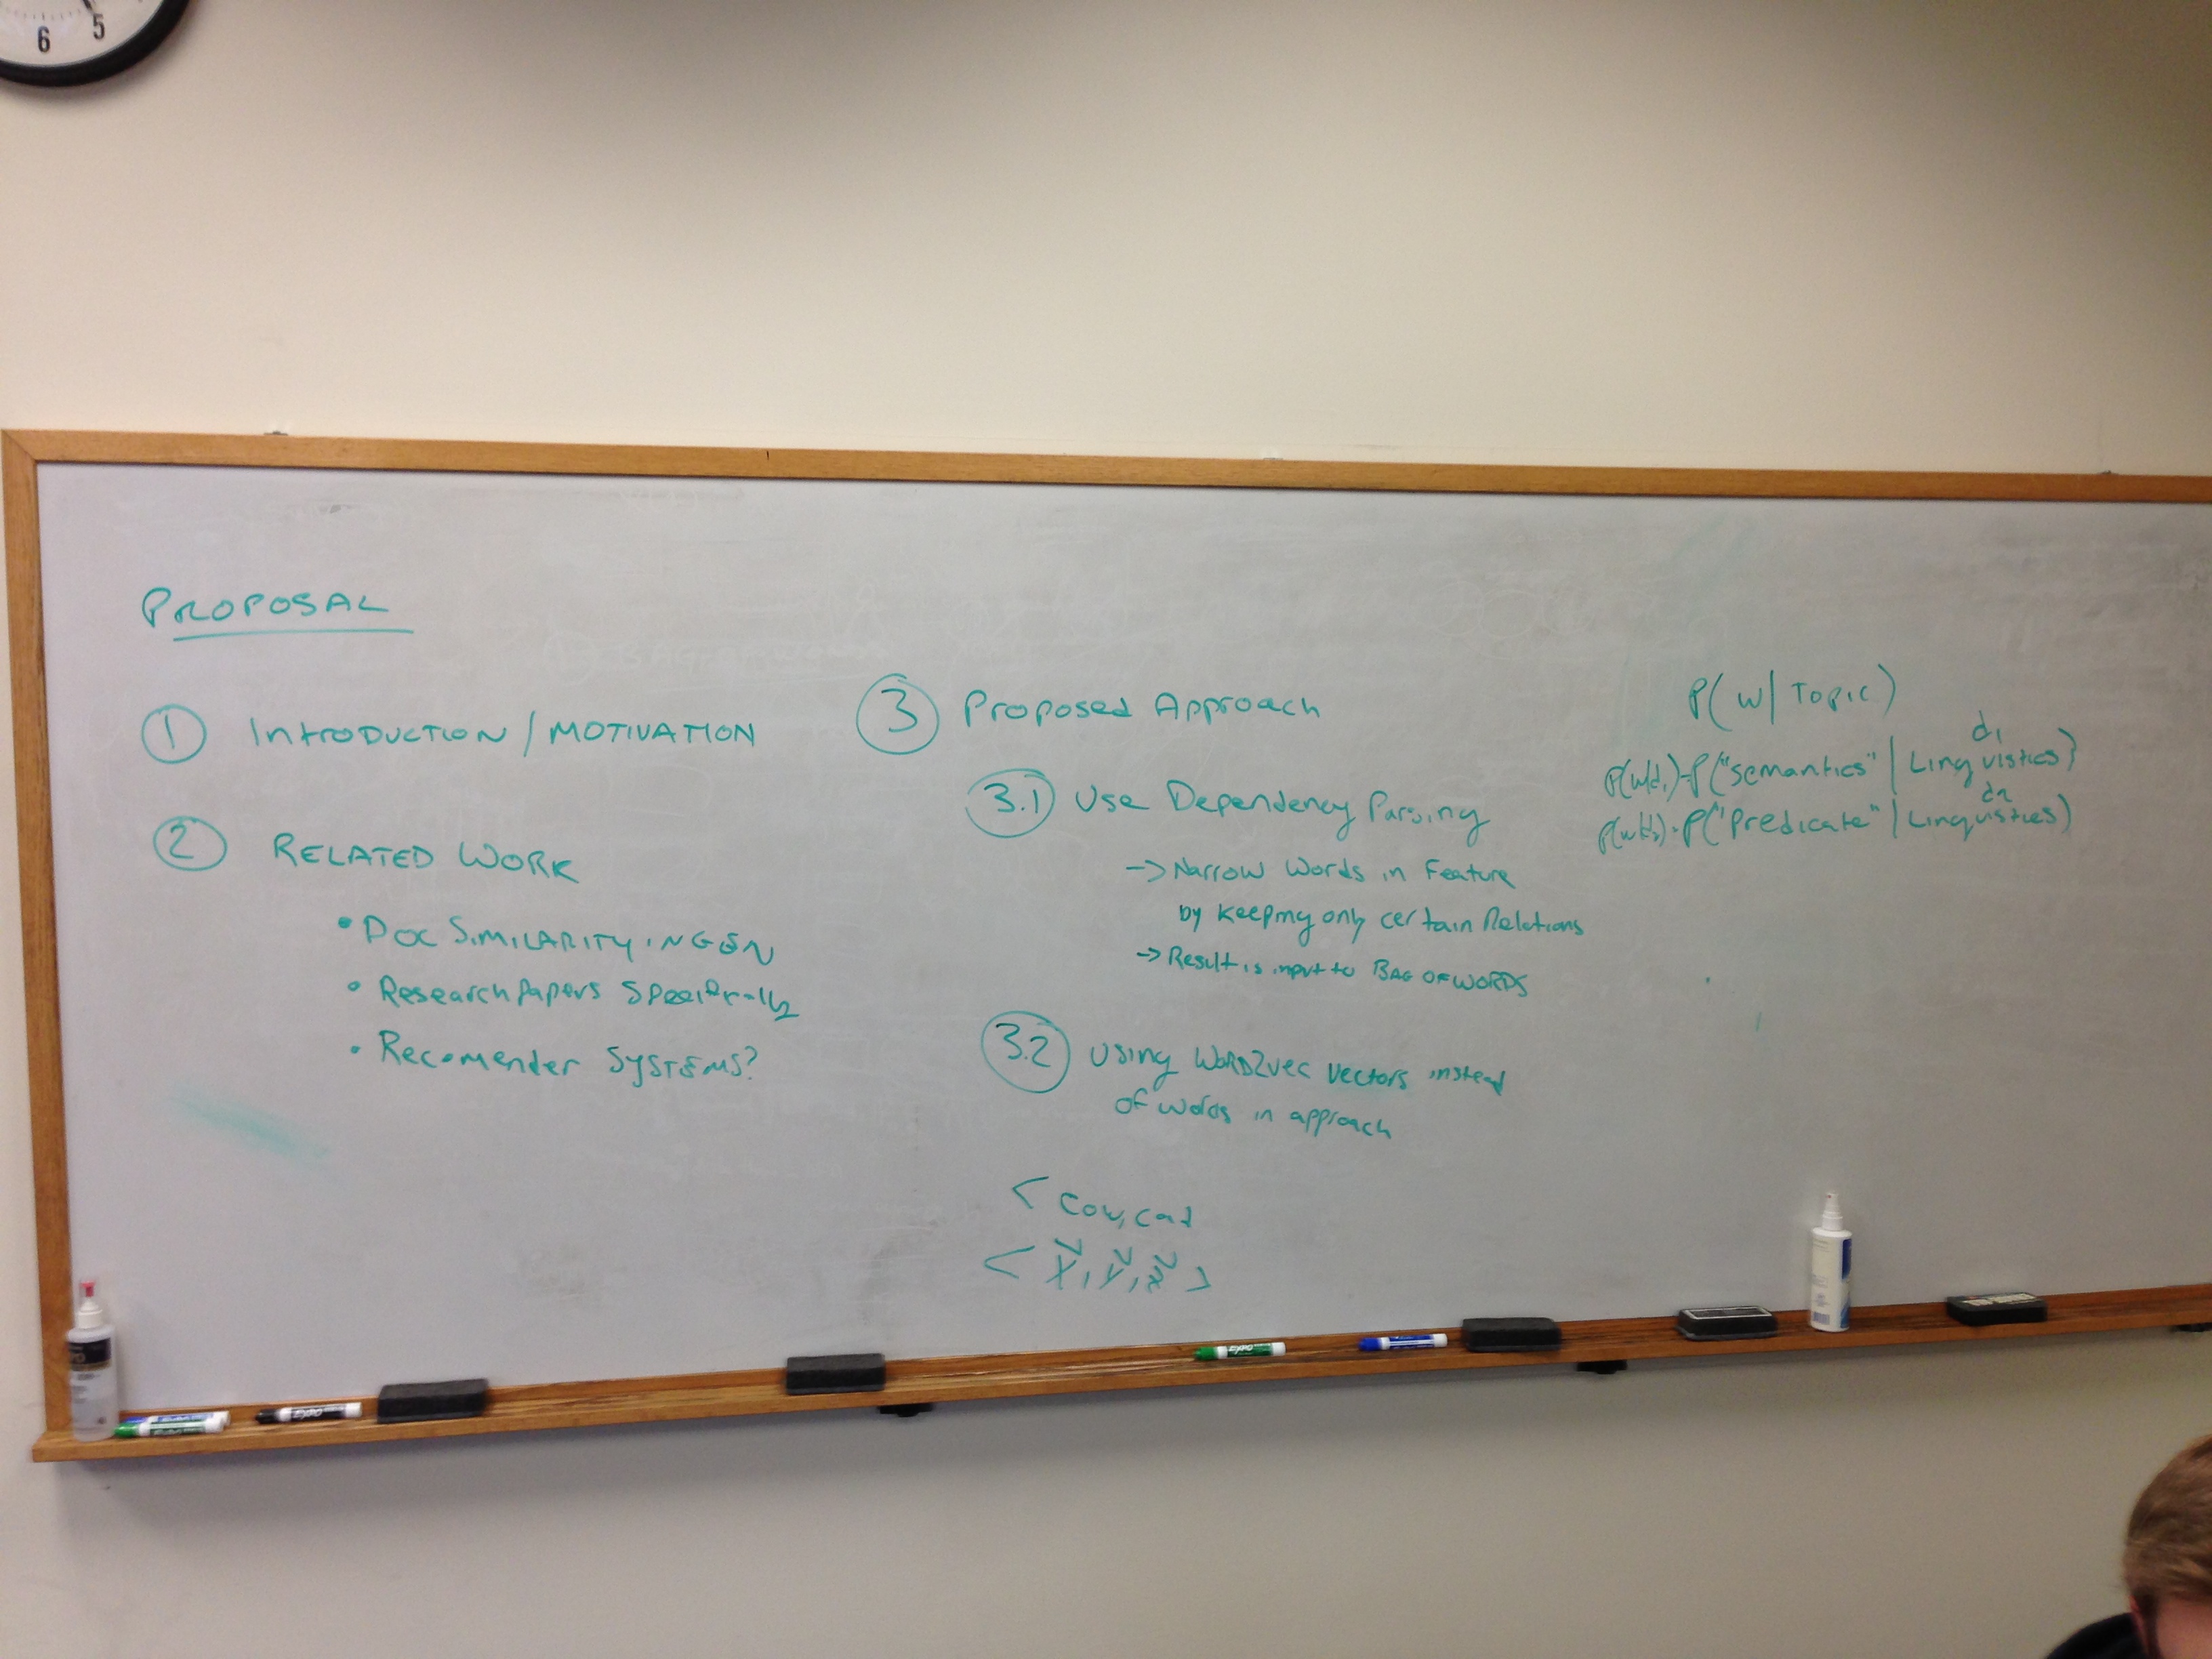 6 5
PROPOSAL
1 INTRODUCTION / MOTIVATION
2 RELATED WORK
• DOC SIMILARITY IN GEN
• Research Papers Specifically
• Recomender SYSTEMS?
3 Proposed Approach
3.1 Use Dependency Parsing
-> Narrow Words in Feature
by keeping only certain Relations
-> Result is input to BAG OF WORDS
3.2 Using WORD2vec vectors instead
of words in approach
< cow, cat
P(w|Topic)
d1
P(w|d1)=P("semantics"|Linguistics)
d2
P(w|d2)=P("Predicate"|Linguistics)
EXPO